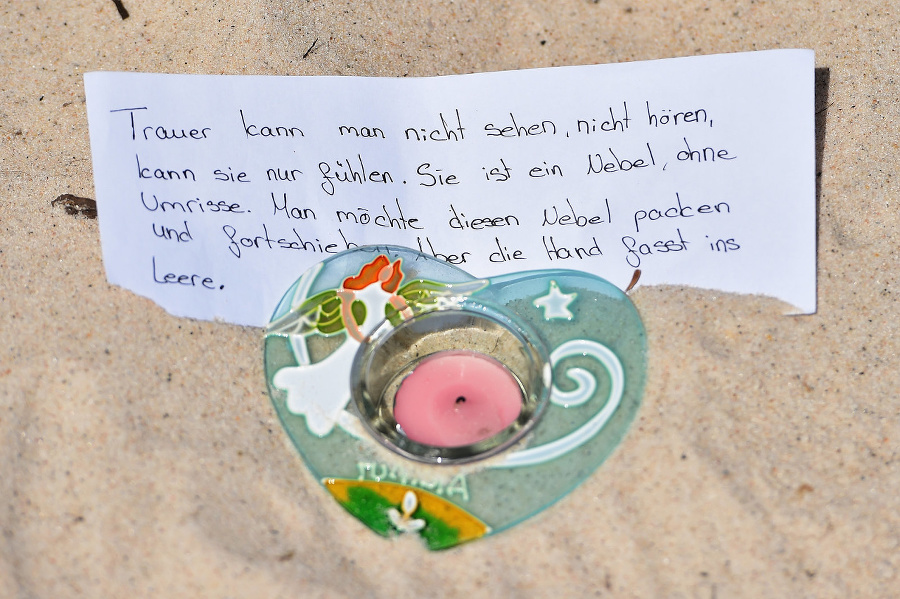 Trauer kann man nicht sehen, nicht hören,
kann sie nur fühlen. Sie ist ein Nebel, ohne
Umrisse. Man möchte diesen Nebel packen
und fortschieben. Aber die Hand fasst ins
Leere.